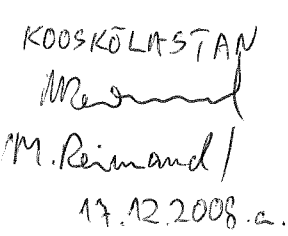 KOOSKÕLASTAN
M. Reimand/
17.12.2008.a.